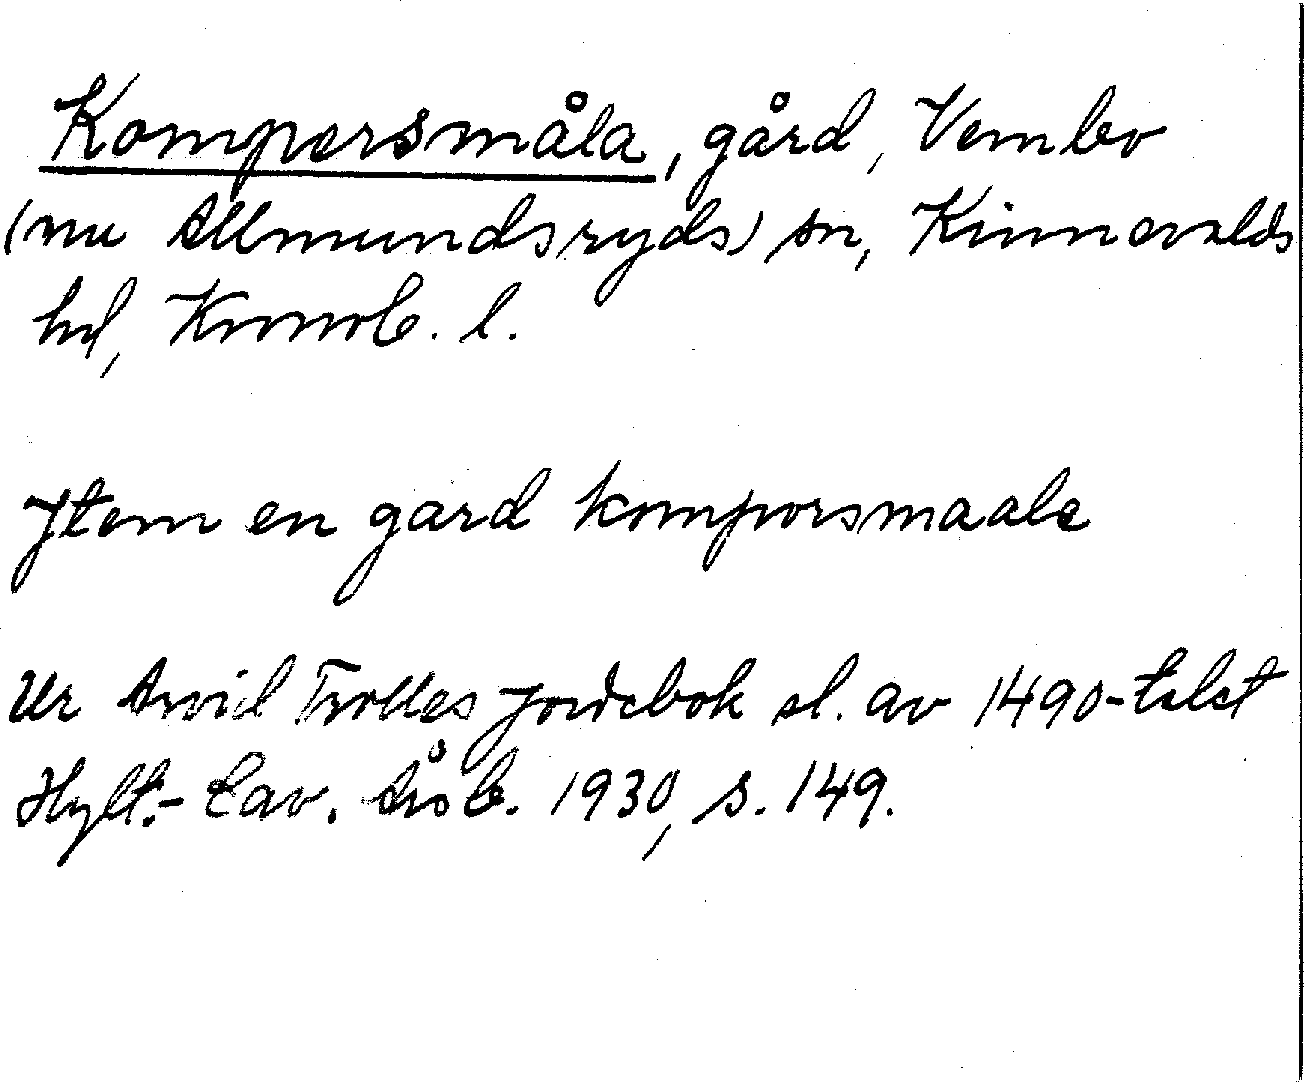 Kompersmåla, gård, Vembo
(nu Allmundsryds) sn, Kinnevalds
hd, Kronob. l.
Jtem en gard komporsmaale
Ur Arvid Trolles Jordebok sl. av 1490-talet
Hylt.-Cav. Årsb. 1930, s. 149.